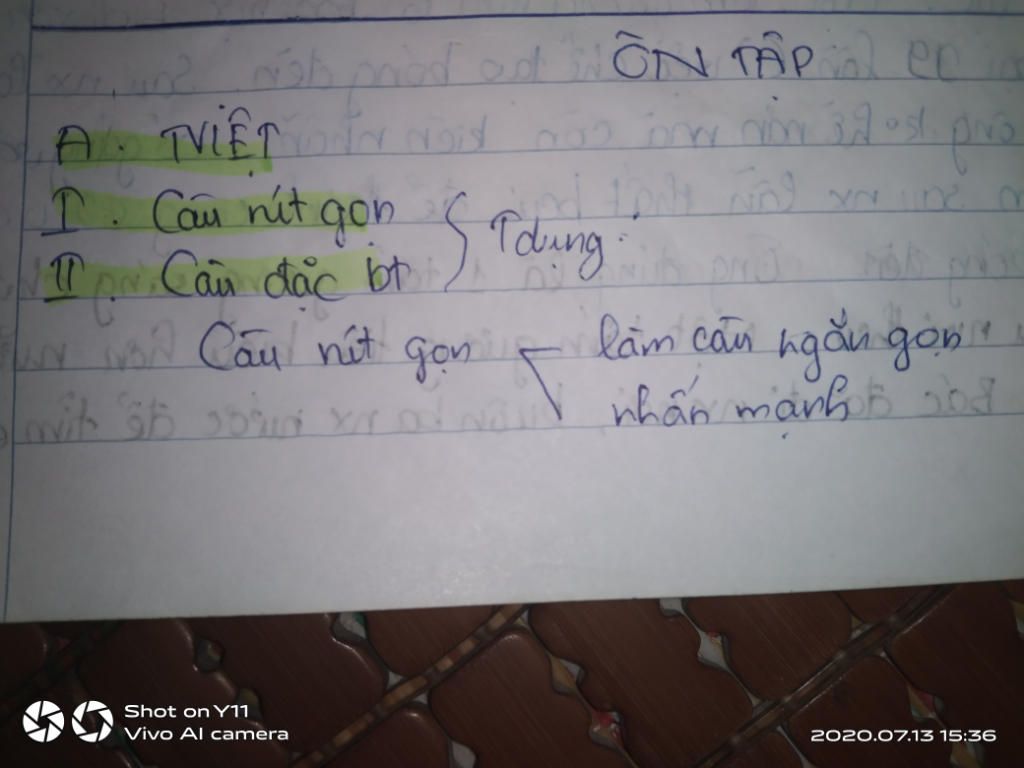 ÔN TẬP
A. TVIỆT
I. Câu rút gọn
II. Câu đặc bt
Tdụng:
Câu rút gọn làm câu ngắn gọn
nhấn mạnh
Shot on Y11
Vivo AI camera
2020.07.13 15:36